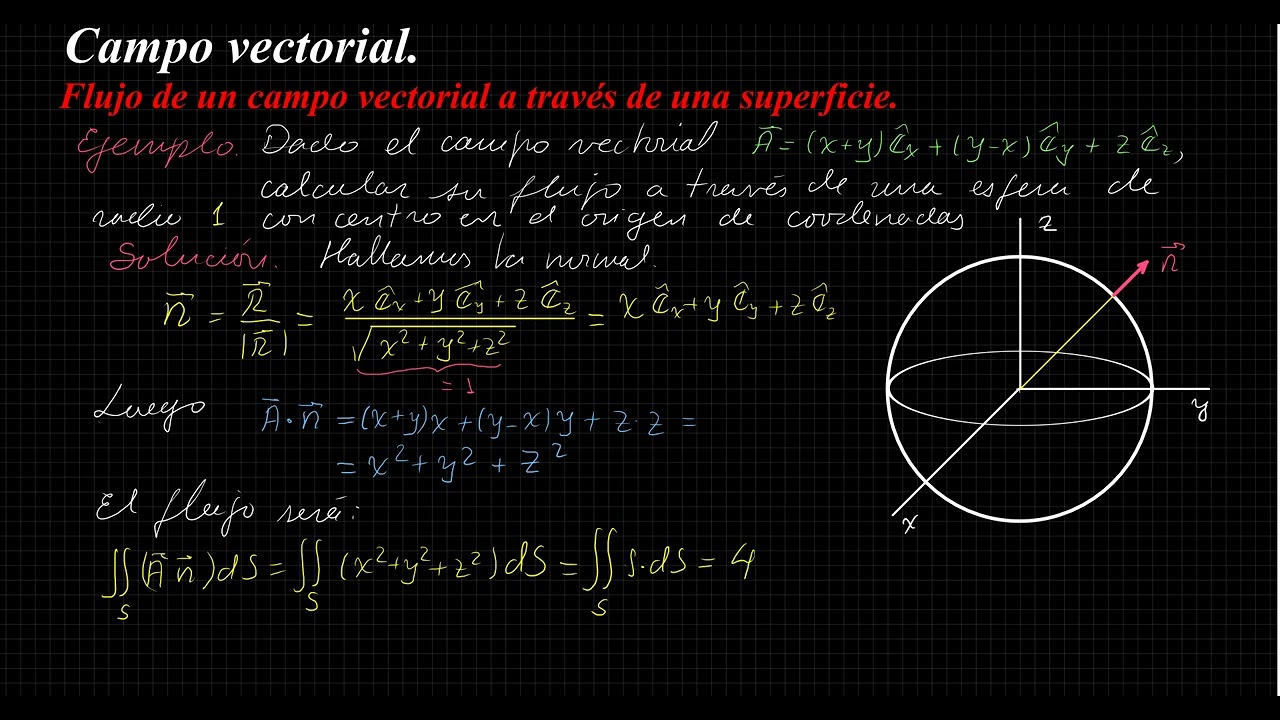 Campo vectorial.
Flujo de un campo vectorial a través de una superficie.
Ejemplo. Dado el campo vectorial A⃗ = (x+y) ê_x + (y-x) ê_y + z ê_z,
calcular su flujo a través de una esfera de
radio 1 con centro en el origen de coordenadas
Solución. Hallamos la normal.
n⃗ = r⃗/|r⃗| = (x ê_x + y ê_y + z ê_z)/√(x²+y²+z²) = x ê_x + y ê_y + z ê_z
= 1
Luego A⃗·n⃗ = (x+y)x + (y-x)y + z·z =
= x² + y² + z²
El flujo será:
∬_S (A⃗ n⃗) dS = ∬_S (x²+y²+z²) dS = ∬_S 1·dS = 4
z
n⃗
y
x